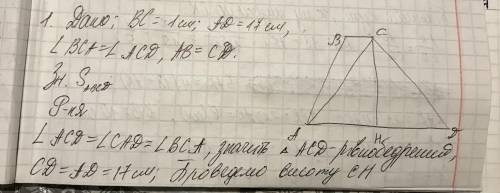 1. Дано; BC = 1 см; AD = 17 см,
∠ BCA = ∠ ACD, AB = CD.
Зн. S
P-ня
∠ ACD = ∠ CAD = ∠ BCA, значить △ ACD - рівнобедрений,
CD = AD = 17 см; Проведемо висоту CH
B C
A H D